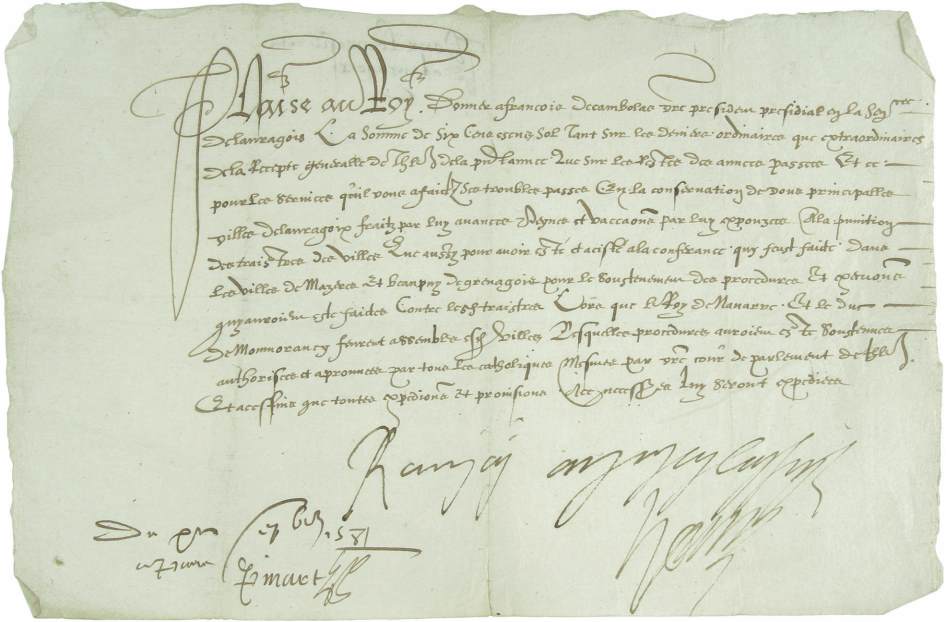 Plaise au Roy. Donner a francois de cambolas vre presiden presidial en la Sen^cee
de lauragois La somme de six Cens escus sol Tant sur les deniers ordinaires que extraordinaires
de la Recepte generalle de Thle de la pnt annee que sur les Restes des annees passees Et ce
pour les services qu'il vous a faictz es troubles passes En la conservation de vous principalles
villes de lauragoix fraitz par luy avances Peynes et vaccaons par luy exposees A la punition
des traistres des villes Que aussy pour avoir este et aciste a la conferance quy feust faicte dans
les villes de Mazeres Et beaupuy de grenague pour le soustenement des procedures Et execuons
quy auroient este faictes Contre lesd traistres Lors que le Roy de Navarre Et le duc
de Monmorancy feurent assembles esd villes Lesquelles procedures auroient este soustenues
authorisees et aprouvees par tous les catholiques Mesmes par vre cour de parlement de thle
Et a ces fins que toutes expedions Et provisions Necessres luy seront expediees
Henry
Du 1581
Pinart